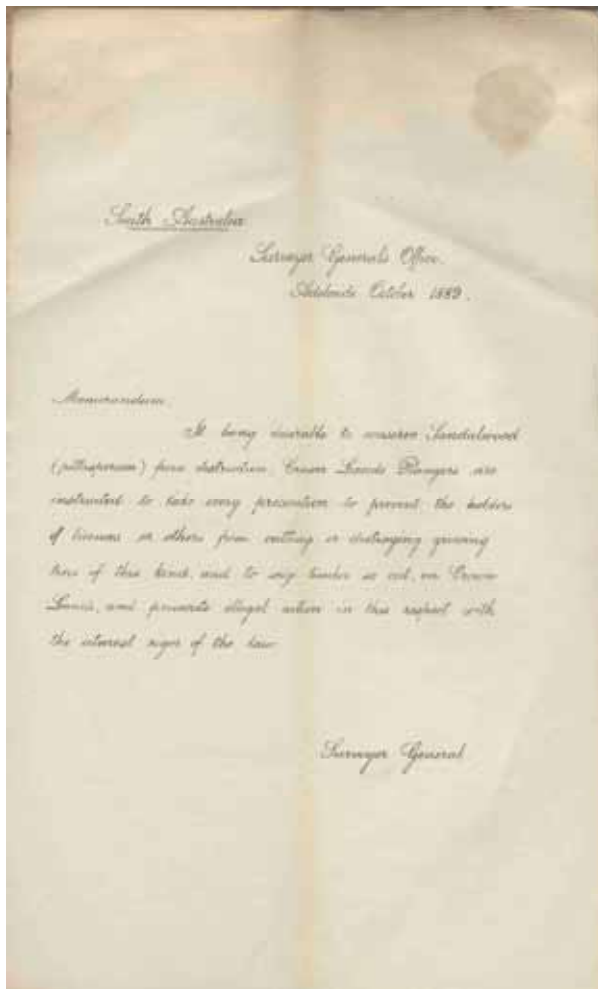 South Australia
Surveyor Generals Office.
Adelaide October 1889.
Memorandum.
It being desirable to conserve Sandalwood
(pittosporum) from destruction, Crown Lands Rangers are
instructed to take every precaution to prevent the holders
of licenses or others from cutting or destroying growing
trees of this kind, and to seize timber so cut, on Crown
Lands, and prosecute illegal action in this respect with
the utmost rigor of the law
Surveyor General